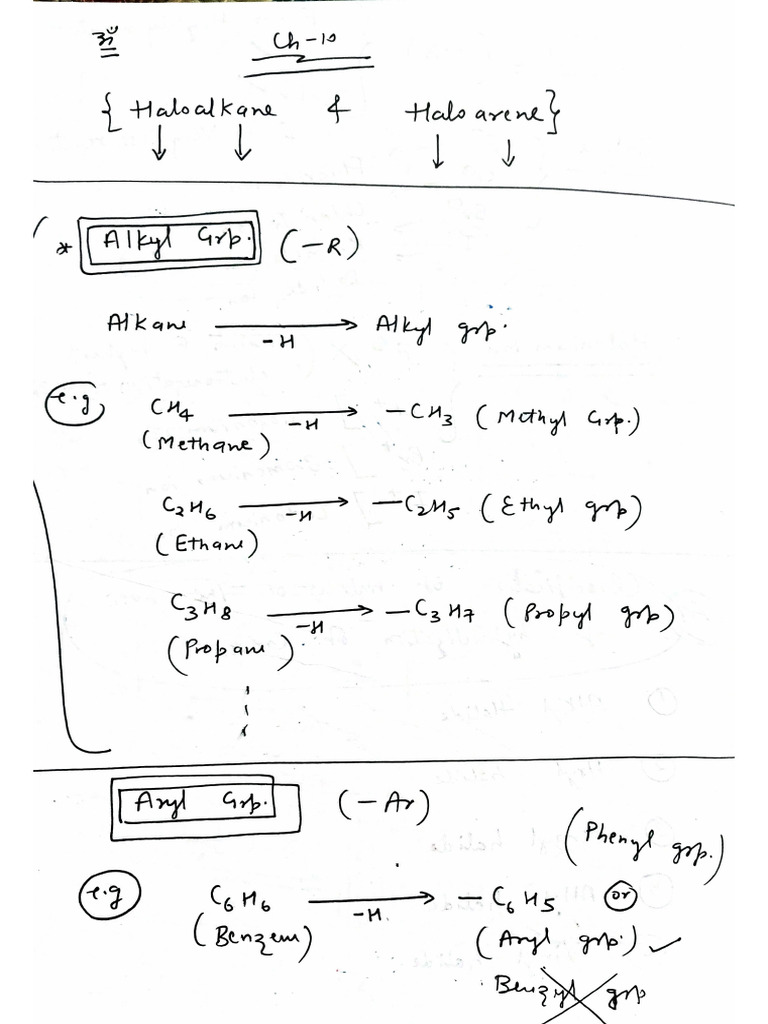 ॐ
Ch-10
{ Haloalkane & Haloarene }
* Alkyl Grp. (-R)
Alkane → Alkyl grp.
-H
e.g
CH4 → -CH3 (Methyl Grp.)
-H
(Methane)
C2H6 → -C2H5 (Ethyl grp)
-H
(Ethane)
C3H8 → -C3H7 (Propyl grp)
-H
(Propane)
Aryl Grp. (-Ar)
(Phenyl grp.)
e.g
C6H6 → -C6H5 or
-H
(Benzene) (Aryl grp.) ✓
Benzyl grp